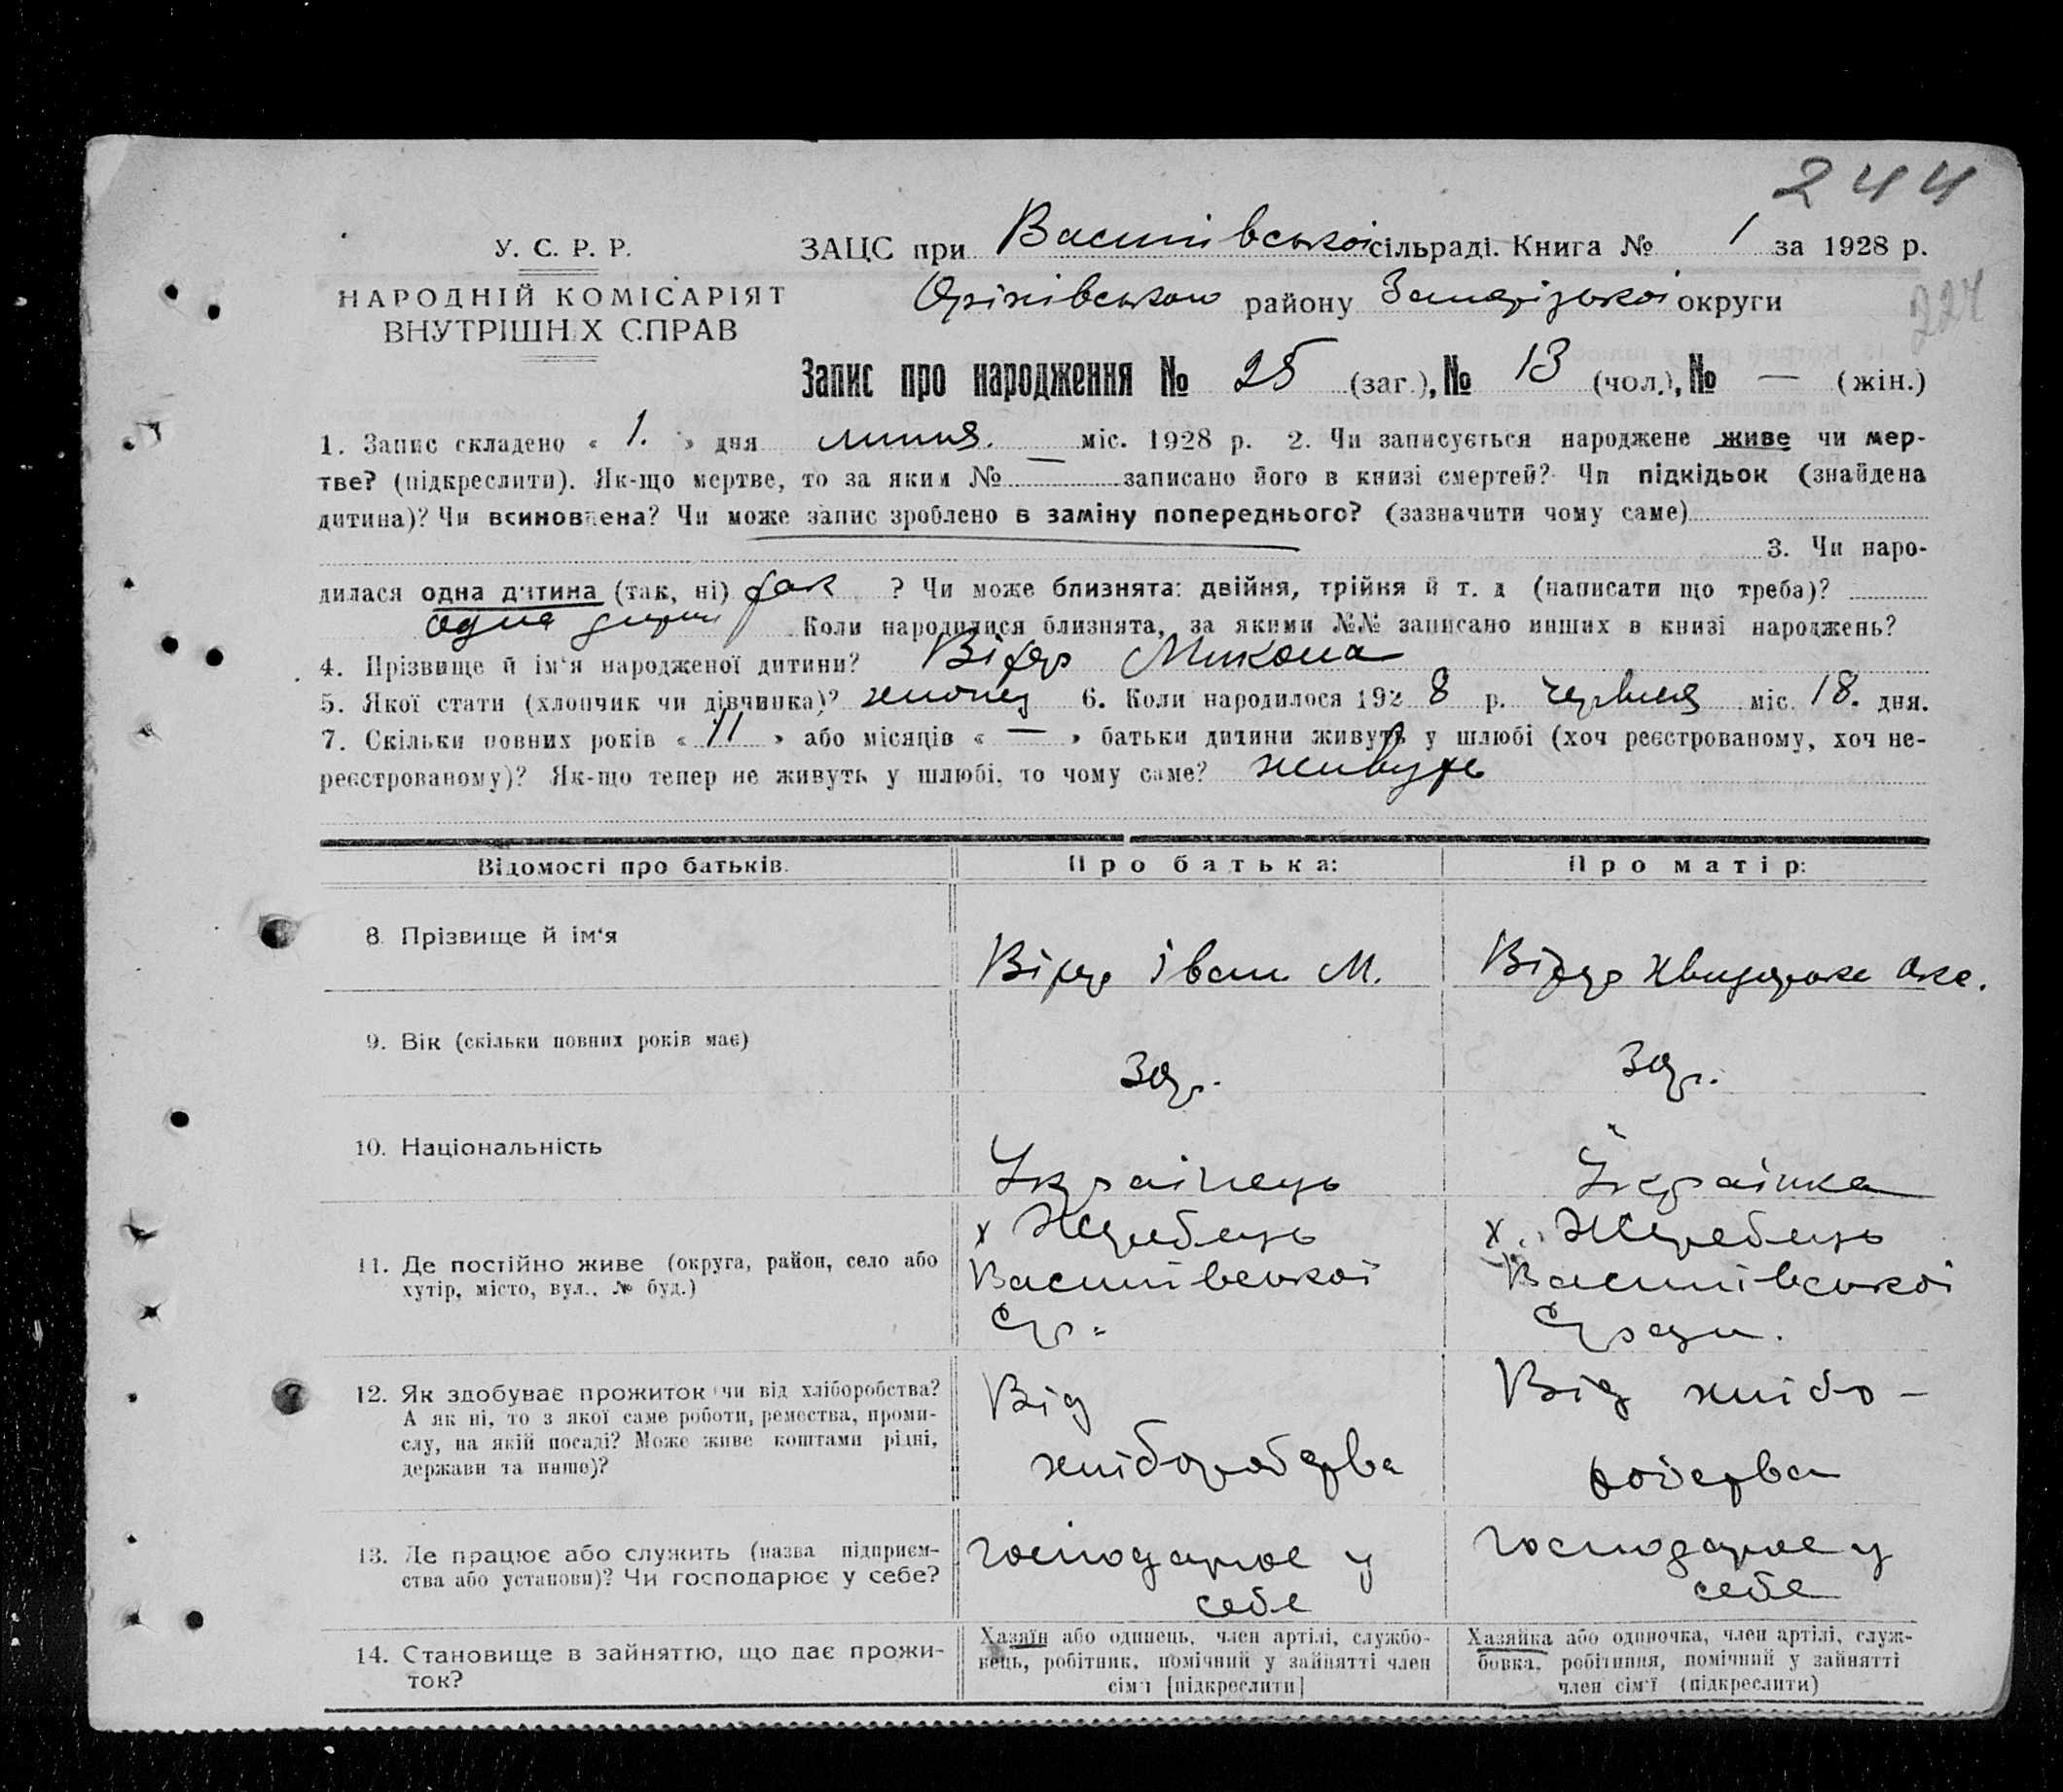 244
У. С. Р. Р.
НАРОДНІЙ КОМІСАРІЯТ
ВНУТРІШНІХ СПРАВ
ЗАЦС при Василівської сільраді. Книга № 1 за 1928 р.
Оріхівського району Запорізької округи
224
Запис про народження № 25 (заг.), № 13 (чол.), № — (жін.)
1. Запис складено « 1. » дня липня. міс. 1928 р. 2. Чи записується народжене живе чи мер-
тве? (підкреслити). Як-що мертве, то за яким № — записано його в книзі смертей? Чи підкідьок (знайдена
дитина)? Чи всиновлена? Чи може запис зроблено в заміну попереднього? (зазначити чому саме)
3. Чи наро-
дилася одна дитина (так, ні) так ? Чи може близнята: двійня, трійня й т. д (написати що треба)?
одна дитин Коли народилися близнята, за якими №№ записано инших в книзі народжень?
4. Прізвище й ім'я народженої дитини? Микола
5. Якої стати (хлопчик чи дівчинка)? хлопец 6. Коли народилося 1928 р. червня міс. 18. дня.
7. Скільки повних років « 11 » або місяців « — » батьки дитини живуть у шлюбі (хоч реєстрованому, хоч не-
реєстрованому)? Як-що тепер не живуть у шлюбі, то чому саме? живуть
Відомості про батьків.
Про батька:
Про матір:
8. Прізвище й ім'я
Іван М.
9. Вік (скільки повних років має)
10. Національність
Українець
Українка
11. Де постійно живе (округа, район, село або
хутір, місто, вул., № буд.)
х Жеребець
Василівської
х. Жеребець
Василівської
12. Як здобуває прожиток чи від хліборобства?
А як ні, то з якої саме роботи, ремества, проми-
слу, на якій посаді? Може живе коштами рідні,
держави та инше)?
Від
хліборобства
Від хлібо-
робства
13. Де працює або служить (назва підприєм-
ства або установи)? Чи господарює у себе?
господарює у
себе
господарює у
себе
14. Становище в зайняттю, що дає прожи-
ток?
Хазяїн або одинець, член артілі, службо-
вець, робітник, помічний у зайнятті член
сім'ї [підкреслити]
Хазяйка або одиночка, член артілі, служ-
бовка, робітниця, помічний у зайнятті
член сім'ї (підкреслити)